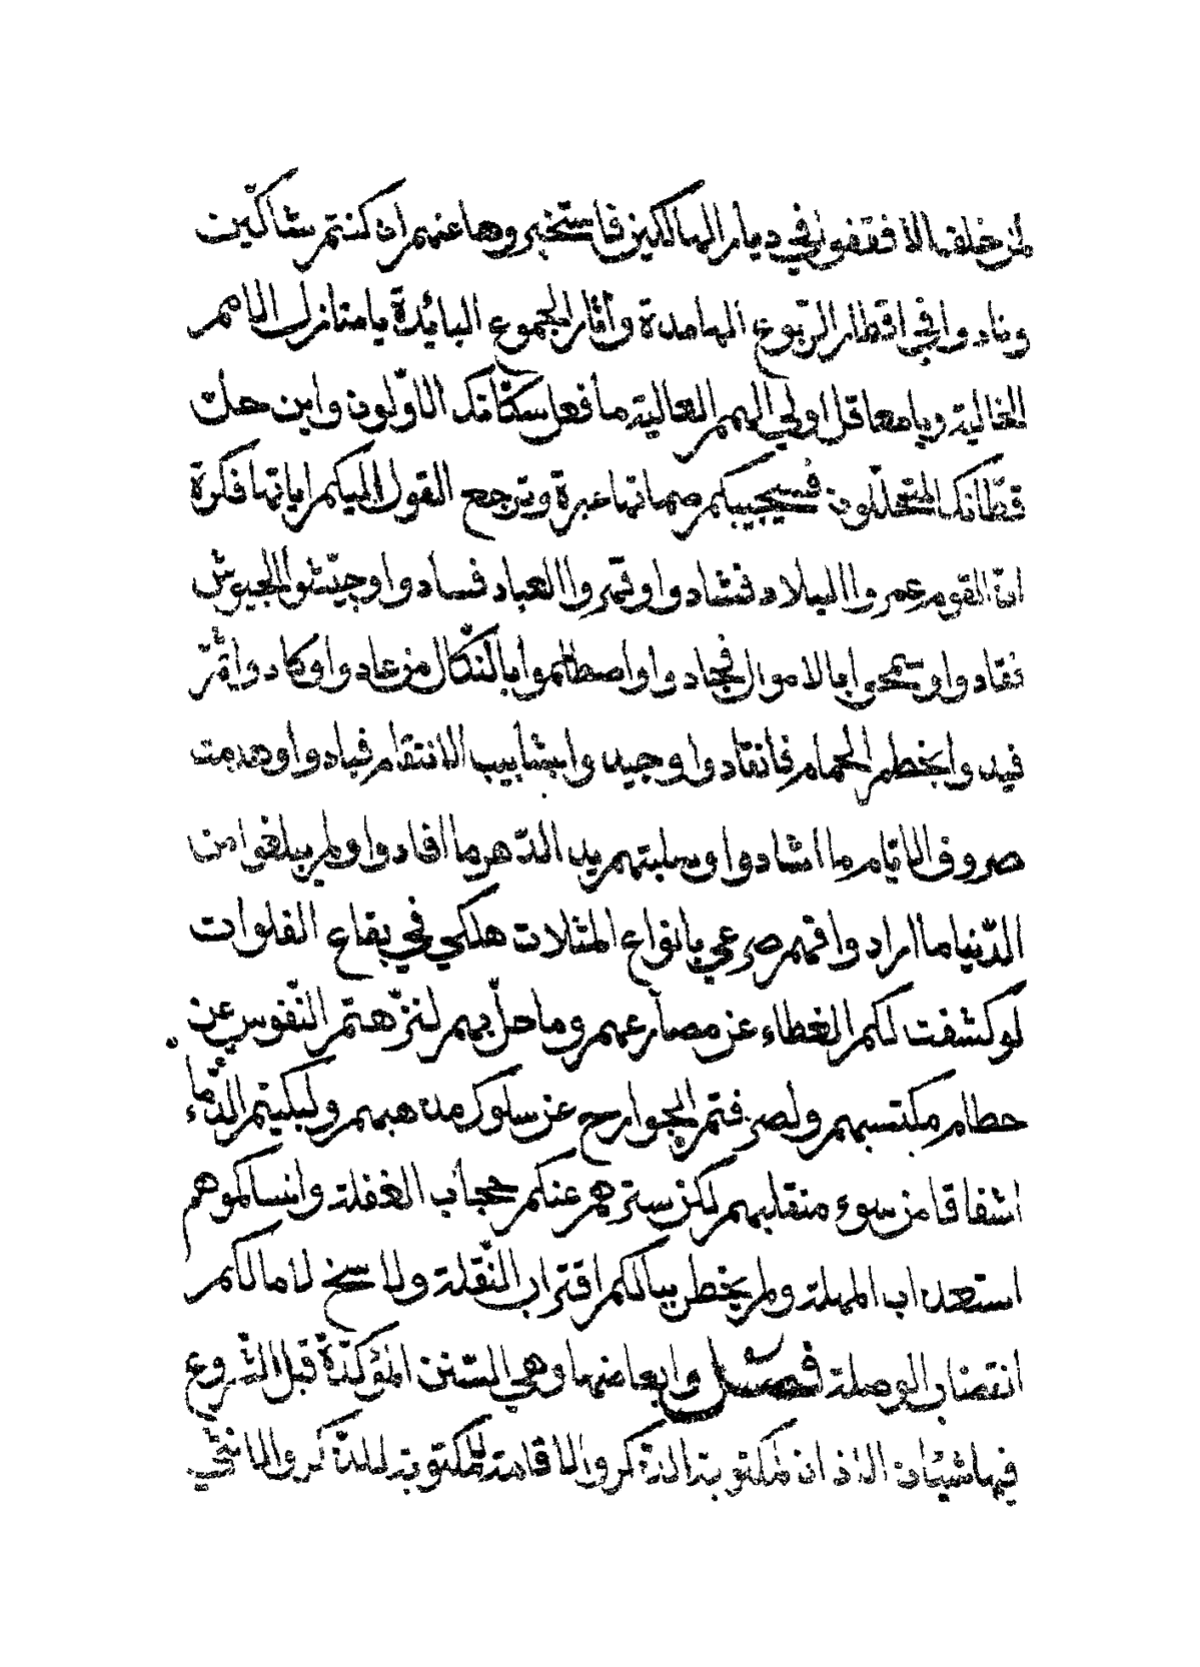 لمن خلف الا فقفوا في ديار الهالكين فاستخبروها عنهم ان كنتم شاكّين
ونادوا في اقطار الرّبوع الهامدة وآثار الجموع البائدة يا منازل الامم
الخالية ويا معاقل اولي الهمم العالية ما فعل سكّانك الاوّلون واين حلّ
قطّانك المتحلّلون فسيجيبكم صماتها عبرة وترجع القول اليكم اياتها فكرة
انّ القوم عمروا البلاد فشادوا وقمروا العباد فسادوا وجيّشوا الجيوش
فقادوا وسمحوا بالاموال فجادوا واصطلموا بالنّكال من عادوا وكادوا ثمّ
قيدوا بخطم الحمام فانقادوا وجيدوا بشابيب الانتقام فبادوا وهدمت
صروف الايّام ما اشادوا وسلبتهم يد الدّهر ما افادوا ولم يبلغوا من
الدّنيا ما ارادوا فهم صرعى بانواع المثلات هلكى في بقاع الفلوات
لو كشفت لكم الغطاء عن مصارعهم وما حلّ بهم لنزّهتم النّفوس عن
حطام مكتسبهم ولصرفتم الجوارح عن سلوك مذهبهم ولبكيتم الدّماء
اشفاقا من سوء منقلبهم لكن ستر هم عنكم حجاب الغفلة وانساكموهم
استعذاب المهلة ولم يخطر ببالكم اقتراب النّقلة ولا سخ لامالكم
انقضاب الوصلة فصـل وابعاضها وهي السّنن المؤكّدة قبل الشّروع
فيها شيئان الاذان لمكتوبة الذكر والاقامة لمكتوبة للذّكر والانثى